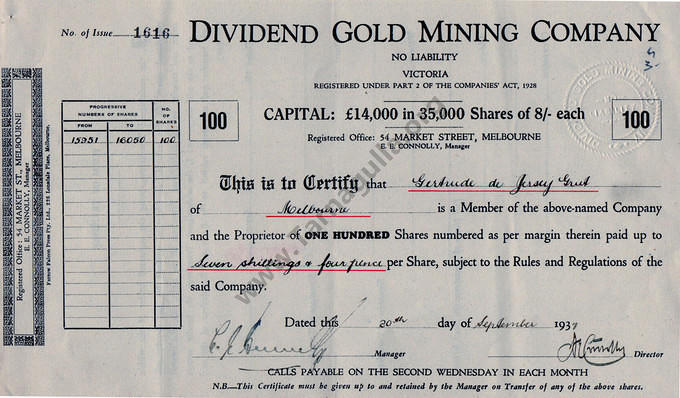 No. of Issue 1616 DIVIDEND GOLD MINING COMPANY
NO LIABILITY
VICTORIA
REGISTERED UNDER PART 2 OF THE COMPANIES' ACT, 1928
CAPITAL: £14,000 in 35,000 Shares of 8/- each
100
100
Registered Office: 54 MARKET STREET, MELBOURNE
E. E. CONNOLLY, Manager
PROGRESSIVE NUMBERS OF SHARES
NO. OF SHARES
FROM TO
15951 16050 100
Registered Office: 54 MARKET ST., MELBOURNE
E. E. CONNOLLY, Manager
Farrow Falcon Press Pty. Ltd., 225 Lonsdale Place, Melbourne.
This is to Certify that Gertrude de Jersey Grut
of Melbourne is a Member of the above-named Company
and the Proprietor of ONE HUNDRED Shares numbered as per margin therein paid up to
Seven shillings & four pence per Share, subject to the Rules and Regulations of the
said Company.
Dated this 20th day of September 1937
Manager
Director
CALLS PAYABLE ON THE SECOND WEDNESDAY IN EACH MONTH
N.B.—This Certificate must be given up to and retained by the Manager on Transfer of any of the above shares.